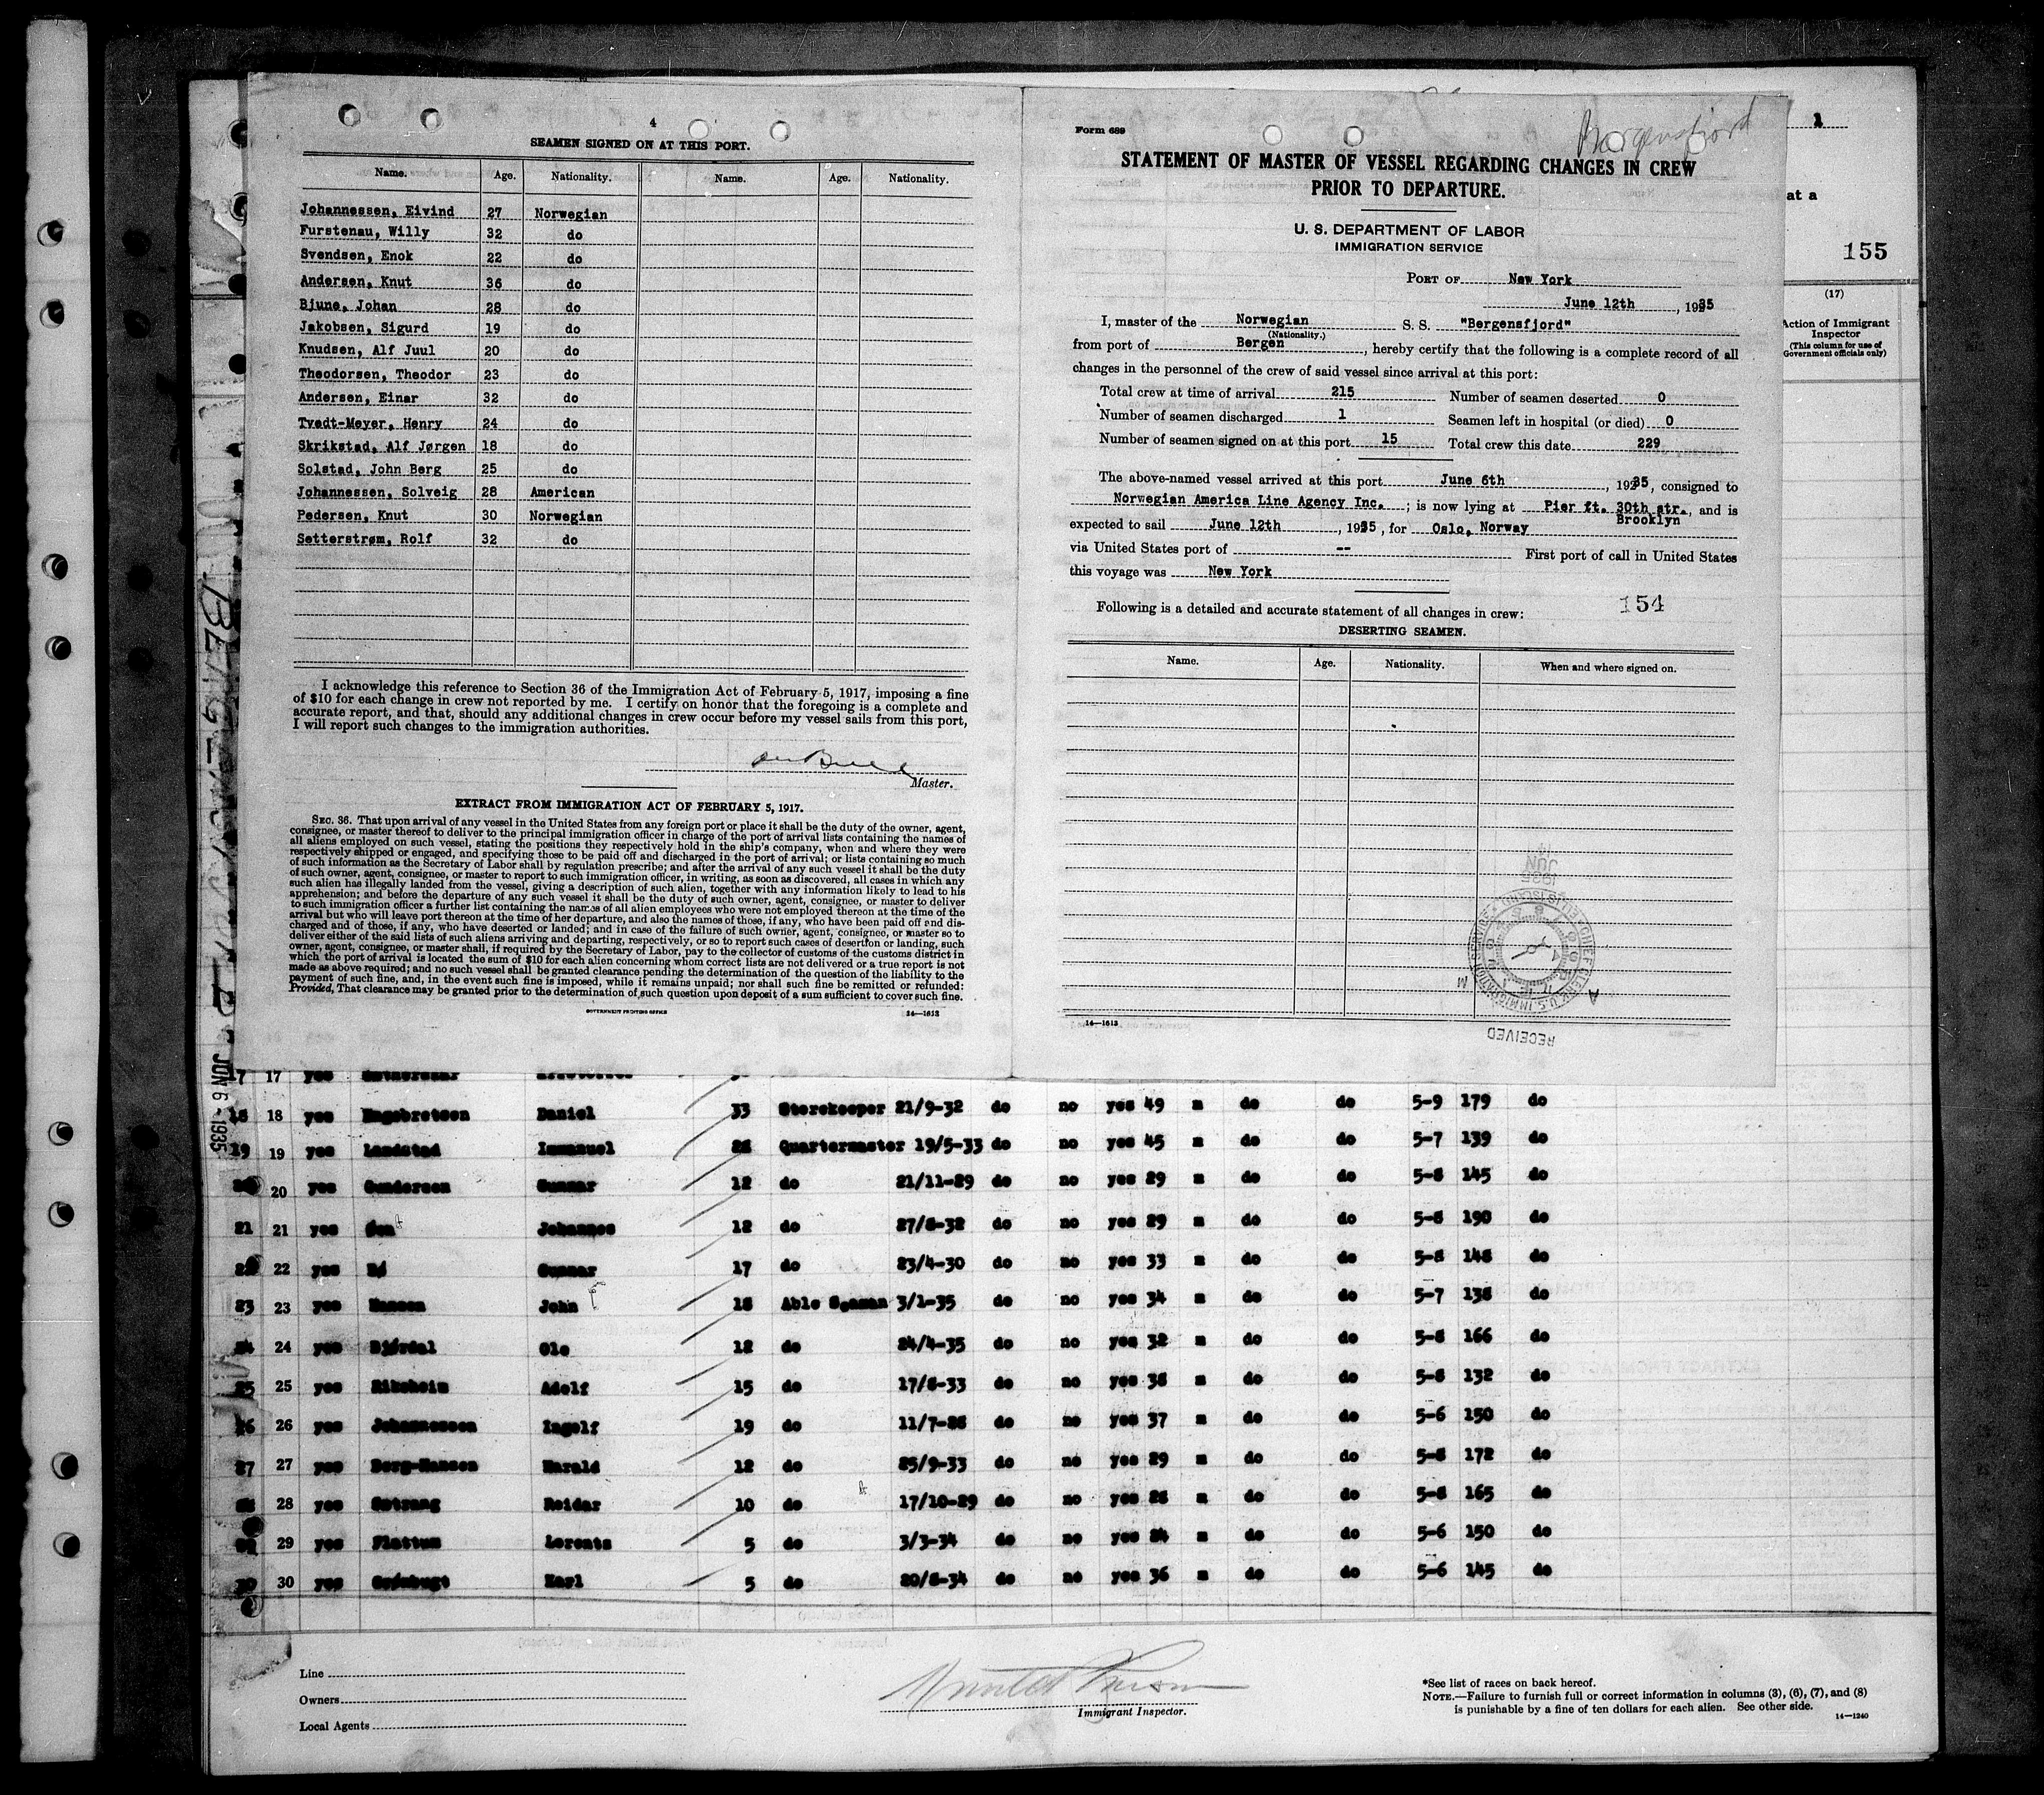 4
SEAMEN SIGNED ON AT THIS PORT.
Name. Age. Nationality. Name. Age. Nationality.
Johannessen, Eivind 27 Norwegian
Furstenau, Willy 32 do
Svendsen, Enok 22 do
Andersen, Knut 36 do
Bjune, Johan 28 do
Jakobsen, Sigurd 19 do
Knudsen, Alf Juul 20 do
Theodorsen, Theodor 23 do
Andersen, Einar 32 do
Tvedt-Meyer, Henry 24 do
Skrikstad, Alf Jørgen 18 do
Solstad, John Berg 25 do
Johannessen, Solveig 28 American
Pedersen, Knut 30 Norwegian
Setterstrøm, Rolf 32 do
I acknowledge this reference to Section 36 of the Immigration Act of February 5, 1917, imposing a fine
of $10 for each change in crew not reported by me. I certify on honor that the foregoing is a complete and
accurate report, and that, should any additional changes in crew occur before my vessel sails from this port,
I will report such changes to the immigration authorities.
Master.
EXTRACT FROM IMMIGRATION ACT OF FEBRUARY 5, 1917.
SEC. 36. That upon arrival of any vessel in the United States from any foreign port or place it shall be the duty of the owner, agent,
consignee, or master thereof to deliver to the principal immigration officer in charge of the port of arrival lists containing the names of
all aliens employed on such vessel, stating the positions they respectively hold in the ship's company, when and where they were
respectively shipped or engaged, and specifying those to be paid off and discharged in the port of arrival; or lists containing so much
of such information as the Secretary of Labor shall by regulation prescribe; and after the arrival of any such vessel it shall be the duty
of such owner, agent, consignee, or master to report to such immigration officer, in writing, as soon as discovered, all cases in which any
such alien has illegally landed from the vessel, giving a description of such alien, together with any information likely to lead to his
apprehension; and before the departure of any such vessel it shall be the duty of such owner, agent, consignee, or master to deliver
to such immigration officer a further list containing the names of all alien employees who were not employed thereon at the time of the
arrival but who will leave port thereon at the time of her departure, and also the names of those, if any, who have been paid off and dis-
charged and of those, if any, who have deserted or landed; and in case of the failure of such owner, agent, consignee, or master so to
deliver either of the said lists of such aliens arriving and departing, respectively, or so to report such cases of desertion or landing, such
owner, agent, consignee, or master shall, if required by the Secretary of Labor, pay to the collector of customs of the customs district in
which the port of arrival is located the sum of $10 for each alien concerning whom correct lists are not delivered or a true report is not
made as above required; and no such vessel shall be granted clearance pending the determination of the question of the liability to the
payment of such fine, and, in the event such fine is imposed, while it remains unpaid; nor shall such fine be remitted or refunded:
Provided, That clearance may be granted prior to the determination of such question upon deposit of a sum sufficient to cover such fine.
GOVERNMENT PRINTING OFFICE 14—1613
Form 689
Bergensfjord
STATEMENT OF MASTER OF VESSEL REGARDING CHANGES IN CREW
PRIOR TO DEPARTURE.
U. S. DEPARTMENT OF LABOR
IMMIGRATION SERVICE
PORT OF New York
June 12th, 1935
I, master of the Norwegian S. S. "Bergensfjord"
(Nationality.)
from port of Bergen, hereby certify that the following is a complete record of all
changes in the personnel of the crew of said vessel since arrival at this port:
Total crew at time of arrival 215 Number of seamen deserted 0
Number of seamen discharged 1 Seamen left in hospital (or died) 0
Number of seamen signed on at this port 15 Total crew this date 229
The above-named vessel arrived at this port June 6th, 1935, consigned to
Norwegian America Line Agency Inc. ; is now lying at Pier ft. 30th str., and is
Brooklyn
expected to sail June 12th, 1935, for Oslo, Norway
via United States port of -- First port of call in United States
this voyage was New York
154
Following is a detailed and accurate statement of all changes in crew:
DESERTING SEAMEN.
Name. Age. Nationality. When and where signed on.
14—1613
RECEIVED
1
at a
155
(17)
Action of Immigrant
Inspector
(This column for use of
Government officials only)
JUN 6 - 1935
17 17 yes
18 18 yes Engebretsen Daniel 33 Storekeeper 21/9-32 do no yes 49 m do do 5-9 179 do
19 19 yes Landstad Immanuel Quartermaster 19/5-33 do no yes 45 m do do 5-7 139 do
20 yes Gundersen Gunnar 12 do 21/11-29 do no yes 29 m do do 5-8 145 do
21 21 yes Johannes 12 do 27/8-32 do no yes 29 m do do 5-8 190 do
22 yes Gunnar 17 do 23/4-30 do no yes 33 m do do 5-8 148 do
23 23 yes Hansen John 18 Able Seaman 3/1-35 do no yes 34 m do do 5-7 138 do
24 24 yes Bjørdal Ole 12 do 24/4-35 do no yes 32 m do do 5-8 166 do
25 25 yes Adolf 15 do 17/8-33 do no yes 38 m do do 5-8 132 do
26 26 yes Johannessen Ingolf 19 do 11/7-28 do no yes 37 m do do 5-6 150 do
27 27 yes Berg-Hansen Harald 12 do 25/9-33 do no yes 29 m do do 5-8 172 do
28 yes Reidar 10 do 17/10-29 do no yes 28 m do do 5-8 165 do
29 yes Flattum Lorentz 5 do 3/3-34 do no yes 24 m do do 5-6 150 do
30 30 yes Karl 5 do 20/8-34 do no yes 36 m do do 5-6 145 do
Line
Owners
Local Agents
Immigrant Inspector.
*See list of races on back hereof.
NOTE.—Failure to furnish full or correct information in columns (3), (6), (7), and (8)
is punishable by a fine of ten dollars for each alien. See other side.
14—1240